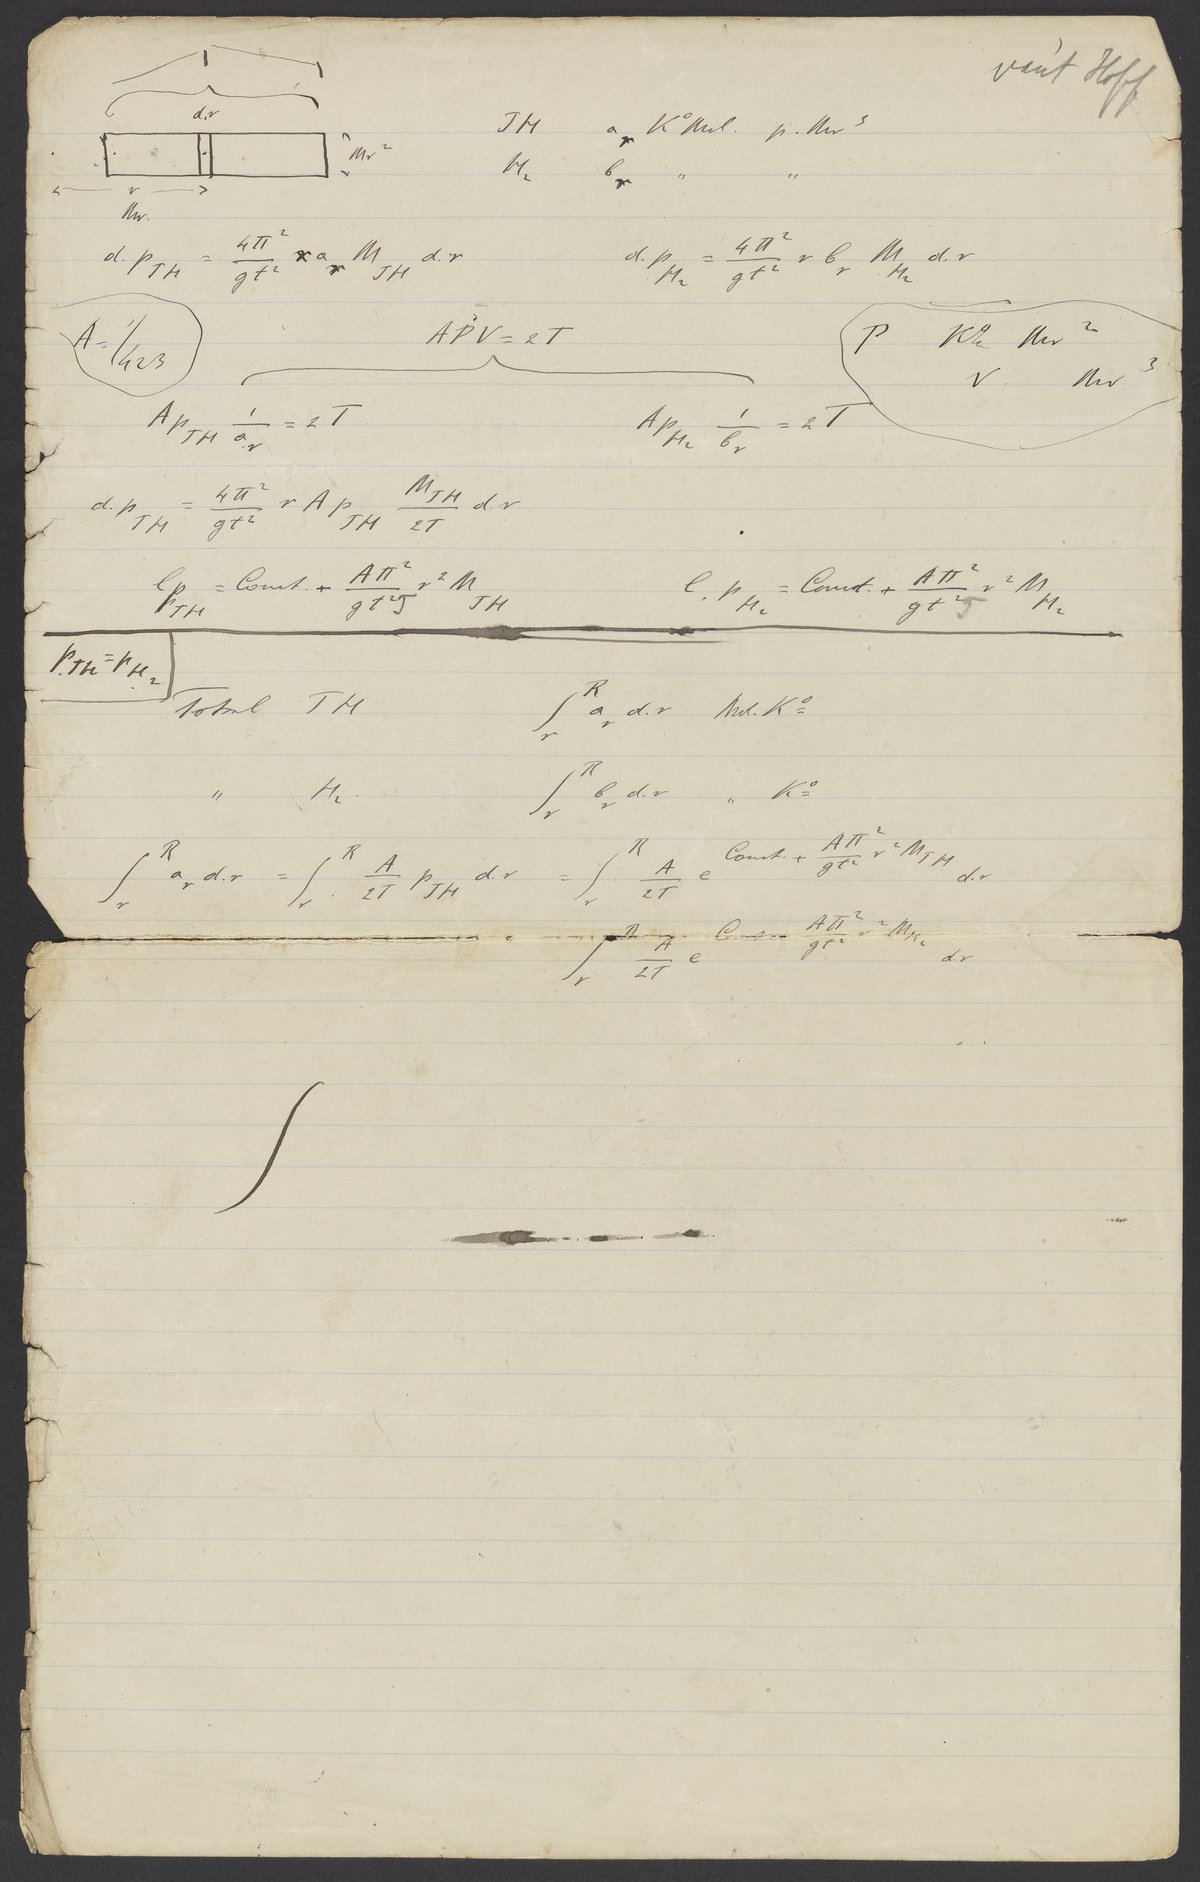 van't Hoff
d.r
JH a_r K° Mol. p. Mr³
Mr²
H₂ b_r " "
r
Mr.
d.p_JH = 4π²/gt² r a_r M_JH d.r d.p_H₂ = 4π²/gt² r b_r M_H₂ d.r
A = 1/423 APV = 2T P K° Mr²
V Mr³
A p_JH 1/a_r = 2T A p_H₂ 1/b_r = 2T
d.p_JH = 4π²/gt² r A p_JH M_JH/2T d.r
l p_JH = Const. + Aπ²/gt²T r² M_JH l. p_H₂ = Const. + Aπ²/gt²T r² M_H₂
p_JH = p_H₂
Total JH ∫_r^R a_r d.r Mol. K°
" H₂ ∫_r^R b_r d.r " K°
∫_r^R a_r d.r = ∫_r^R A/2T p_JH d.r = ∫_r^R A/2T e^(Const. + Aπ²/gt² r² M_JH) d.r
∫_r^R A/2T e^(Const. + Aπ²/gt² r² M_H₂) d.r
∫